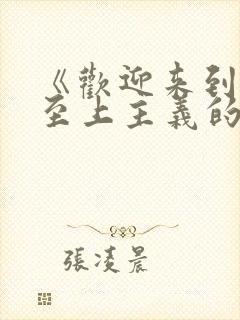 《歡迎来到
至上主義的
張凌晨